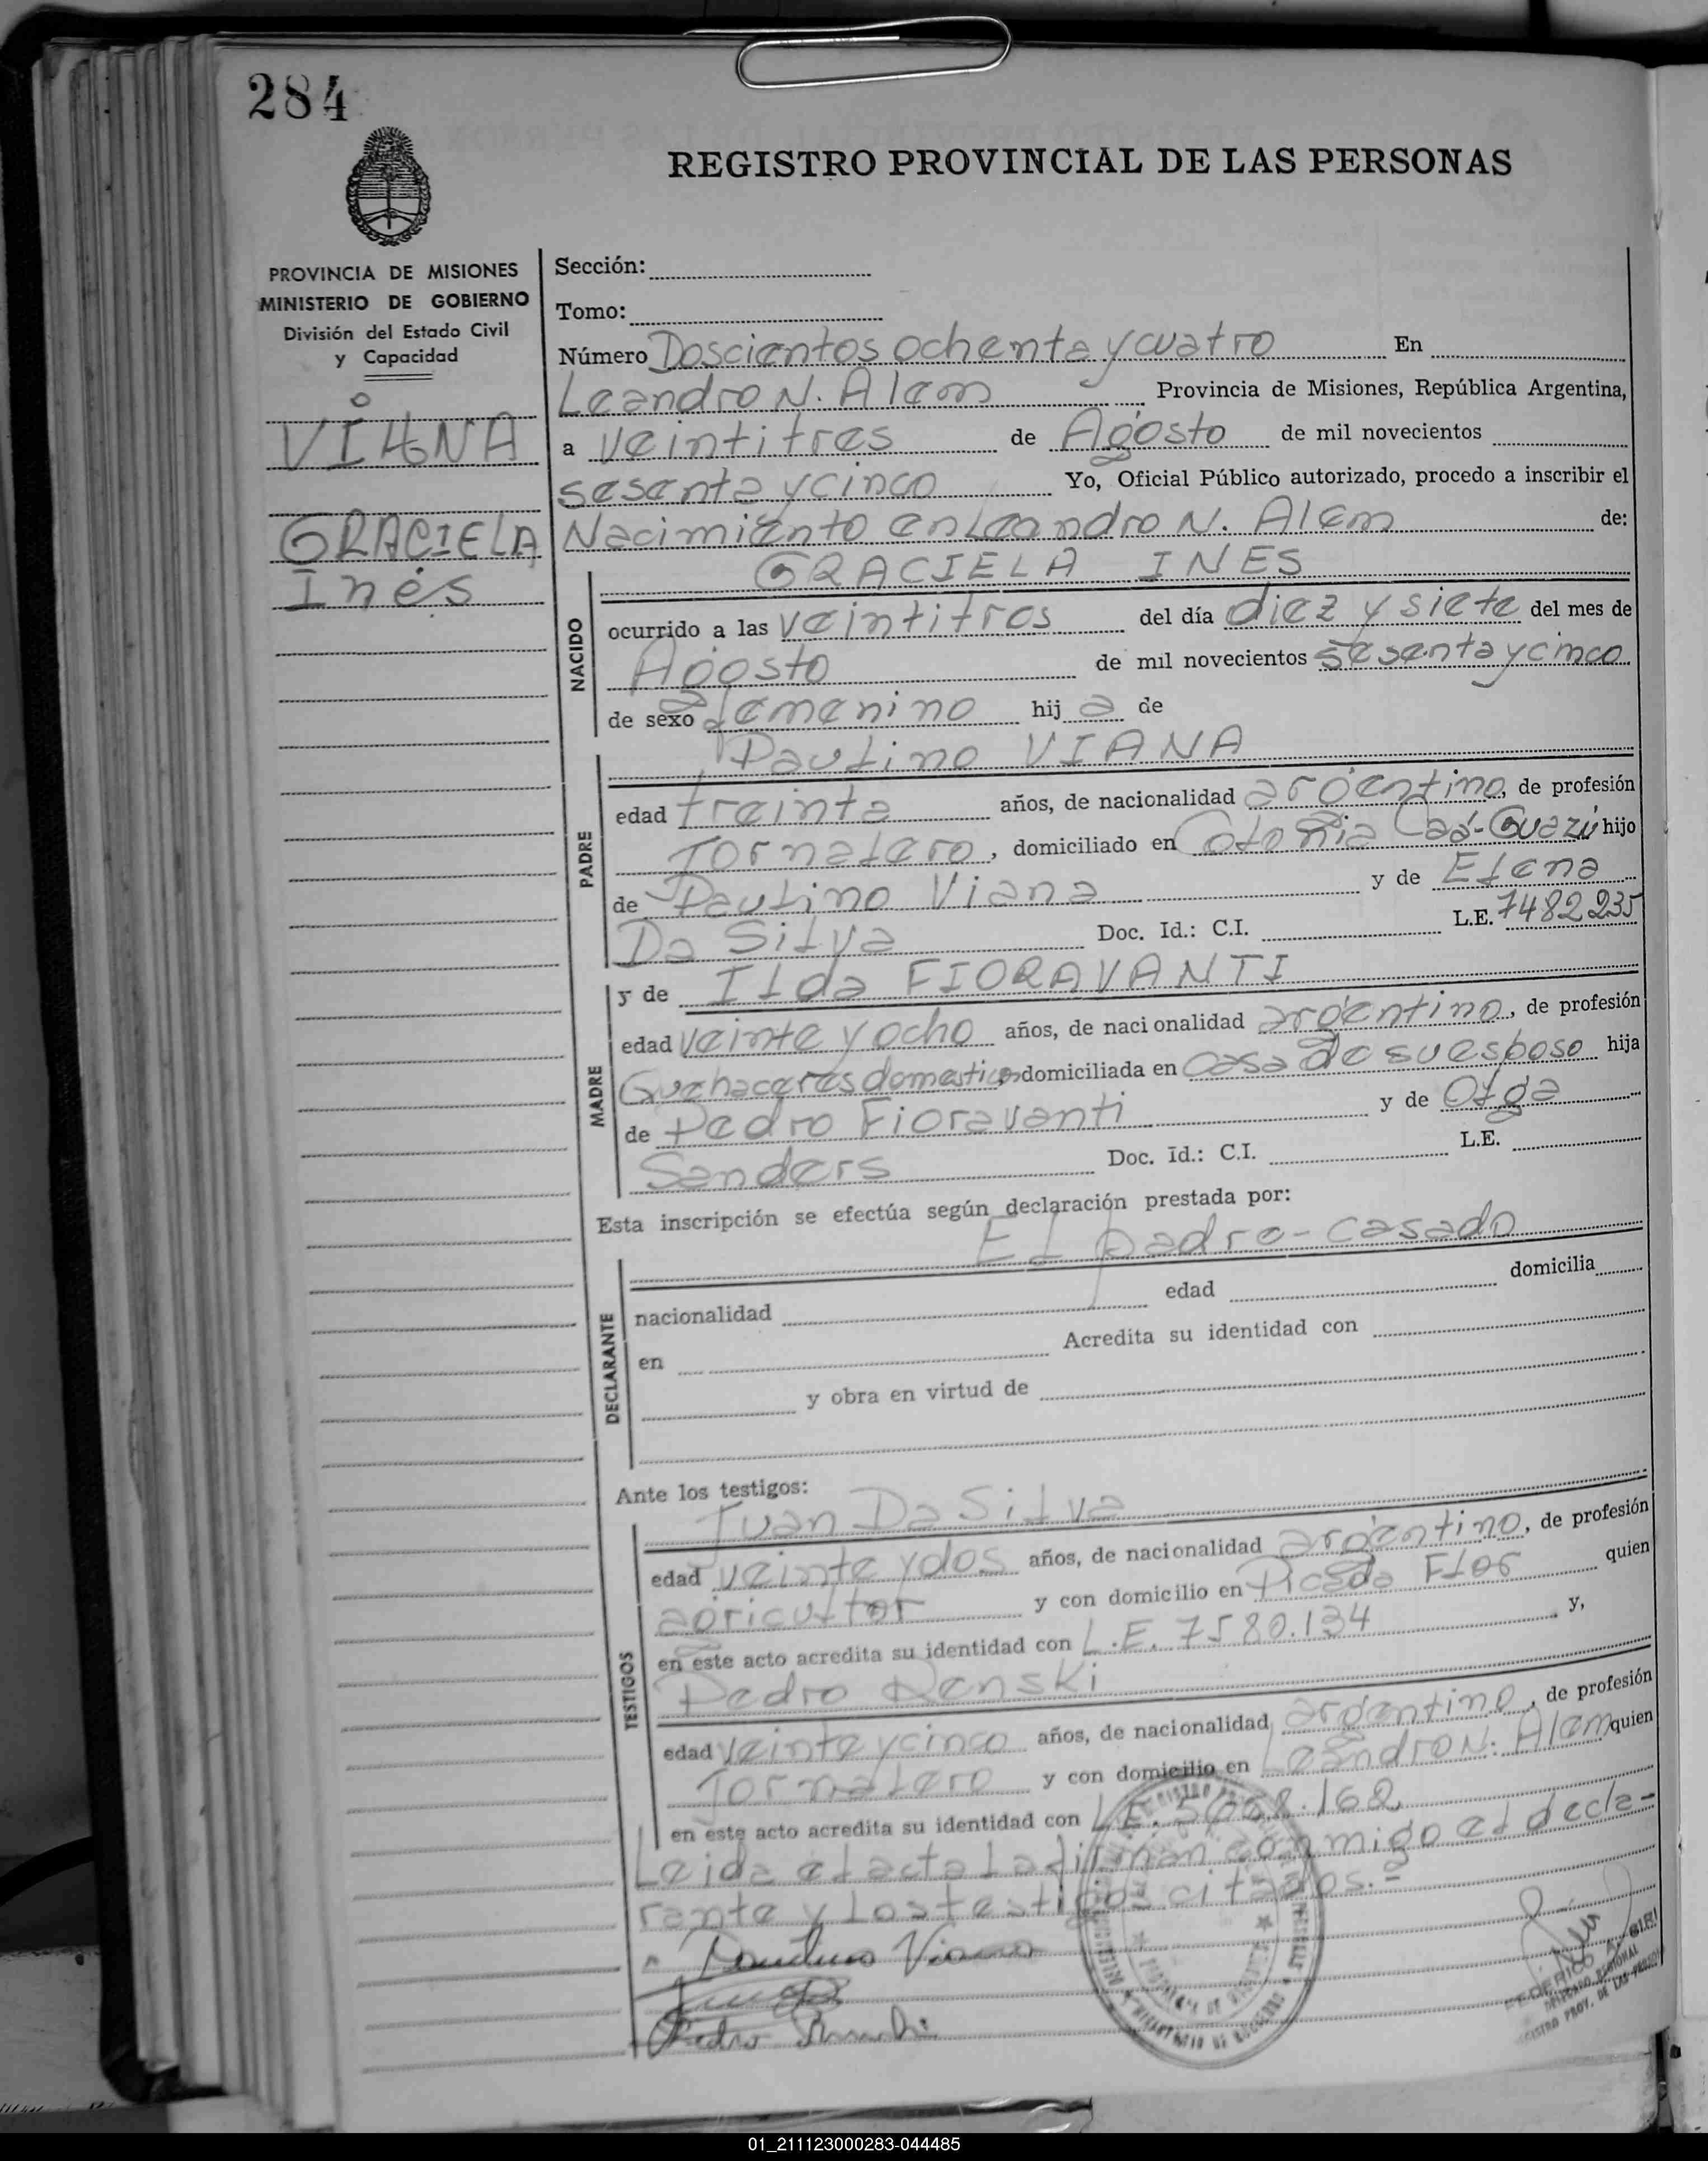 284
REGISTRO PROVINCIAL DE LAS PERSONAS
PROVINCIA DE MISIONES
MINISTERIO DE GOBIERNO
División del Estado Civil
y Capacidad
VIANA
GRACIELA
Inés
Sección:
Tomo:
Número Doscientos ochenta y cuatro En
Leandro N. Alem Provincia de Misiones, República Argentina,
a veintitres de Agosto de mil novecientos
sesenta y cinco Yo, Oficial Público autorizado, procedo a inscribir el
Nacimiento en Leandro N. Alem de:
GRACIELA INES
NACIDO
ocurrido a las veintitres del día diez y siete del mes de
Agosto de mil novecientos sesenta y cinco
de sexo femenino hij a de
Paulino VIANA
PADRE
edad treinta años, de nacionalidad argentino, de profesión
Jornalero, domiciliado en Colonia Caá-Guazú hijo
de Paulino Viana y de Elena
Da Silva Doc. Id.: C.I. L.E. 7482235
y de Ilda FIORAVANTI
MADRE
edad veinte y ocho años, de nacionalidad argentino, de profesión
Quehaceres domestico, domiciliada en casa de su esposo hija
de Pedro Fioravanti y de Olga
Sanders Doc. Id.: C.I. L.E.
Esta inscripción se efectúa según declaración prestada por:
El padre-casado
DECLARANTE
nacionalidad edad domicilia
en Acredita su identidad con
y obra en virtud de
Ante los testigos:
Juan Da Silva
TESTIGOS
edad veinte y dos años, de nacionalidad argentino, de profesión
agricultor y con domicilio en Picada Flor quien
en este acto acredita su identidad con L.E. 7580.134 y,
Pedro Renski
edad veinte y cinco años, de nacionalidad argentino, de profesión
Jornalero y con domicilio en Leandro N. Alem quien
en este acto acredita su identidad con L.E. .168
Leida el acta la firman conmigo el decla-
rante y los testigos citados.=
Paulino Viana
Pedro
DELEGADO REGIONAL
REGISTRO PROV. DE LAS PERSO
01_211123000283-044485